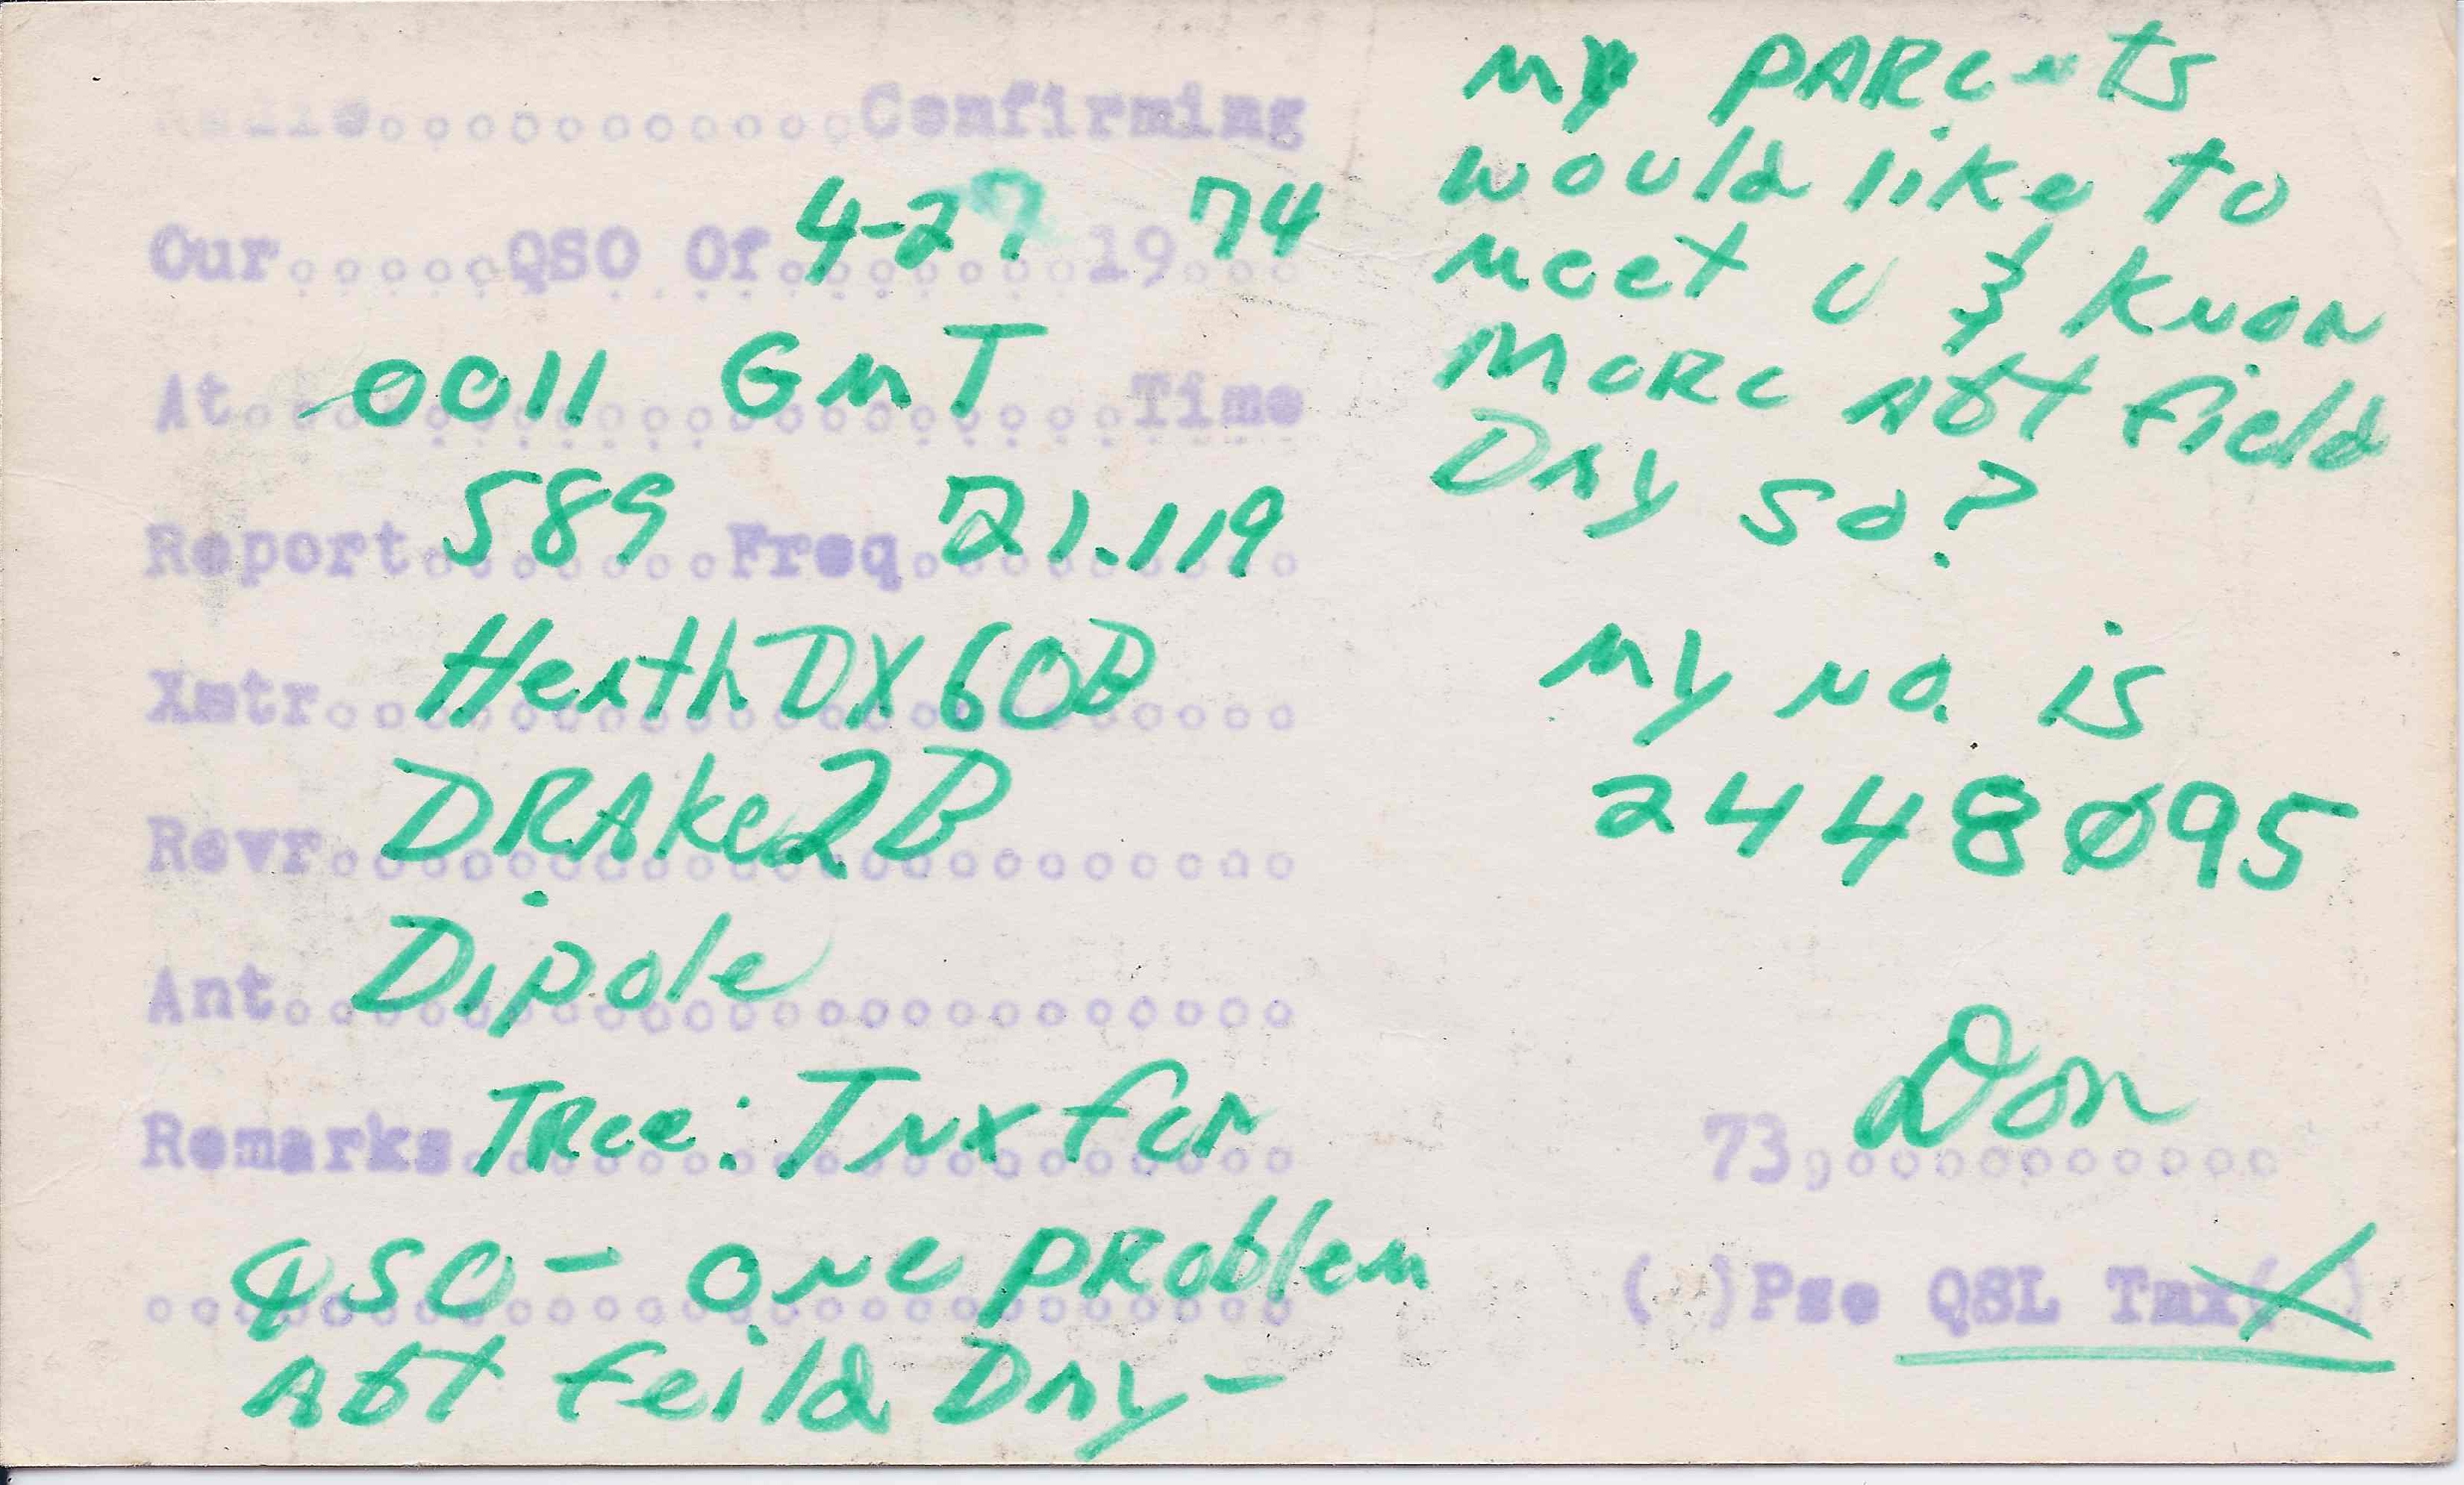 Radio............Confirming
Our.....QSO Of 4-27 19 74
At 0011 GMT Time
Report 589 Freq 21.119
Xmtr Heath DX60B
Rcvr DRAke 2B
Ant Dipole
Remarks TRee: Tnx for
QSO - one pRoblem
Abt feild Day -
my pARents
would like to
meet U & Know
More Abt field
Day so?
my no. is
2448095
73, Don
( )Pse QSL Tnx(X)